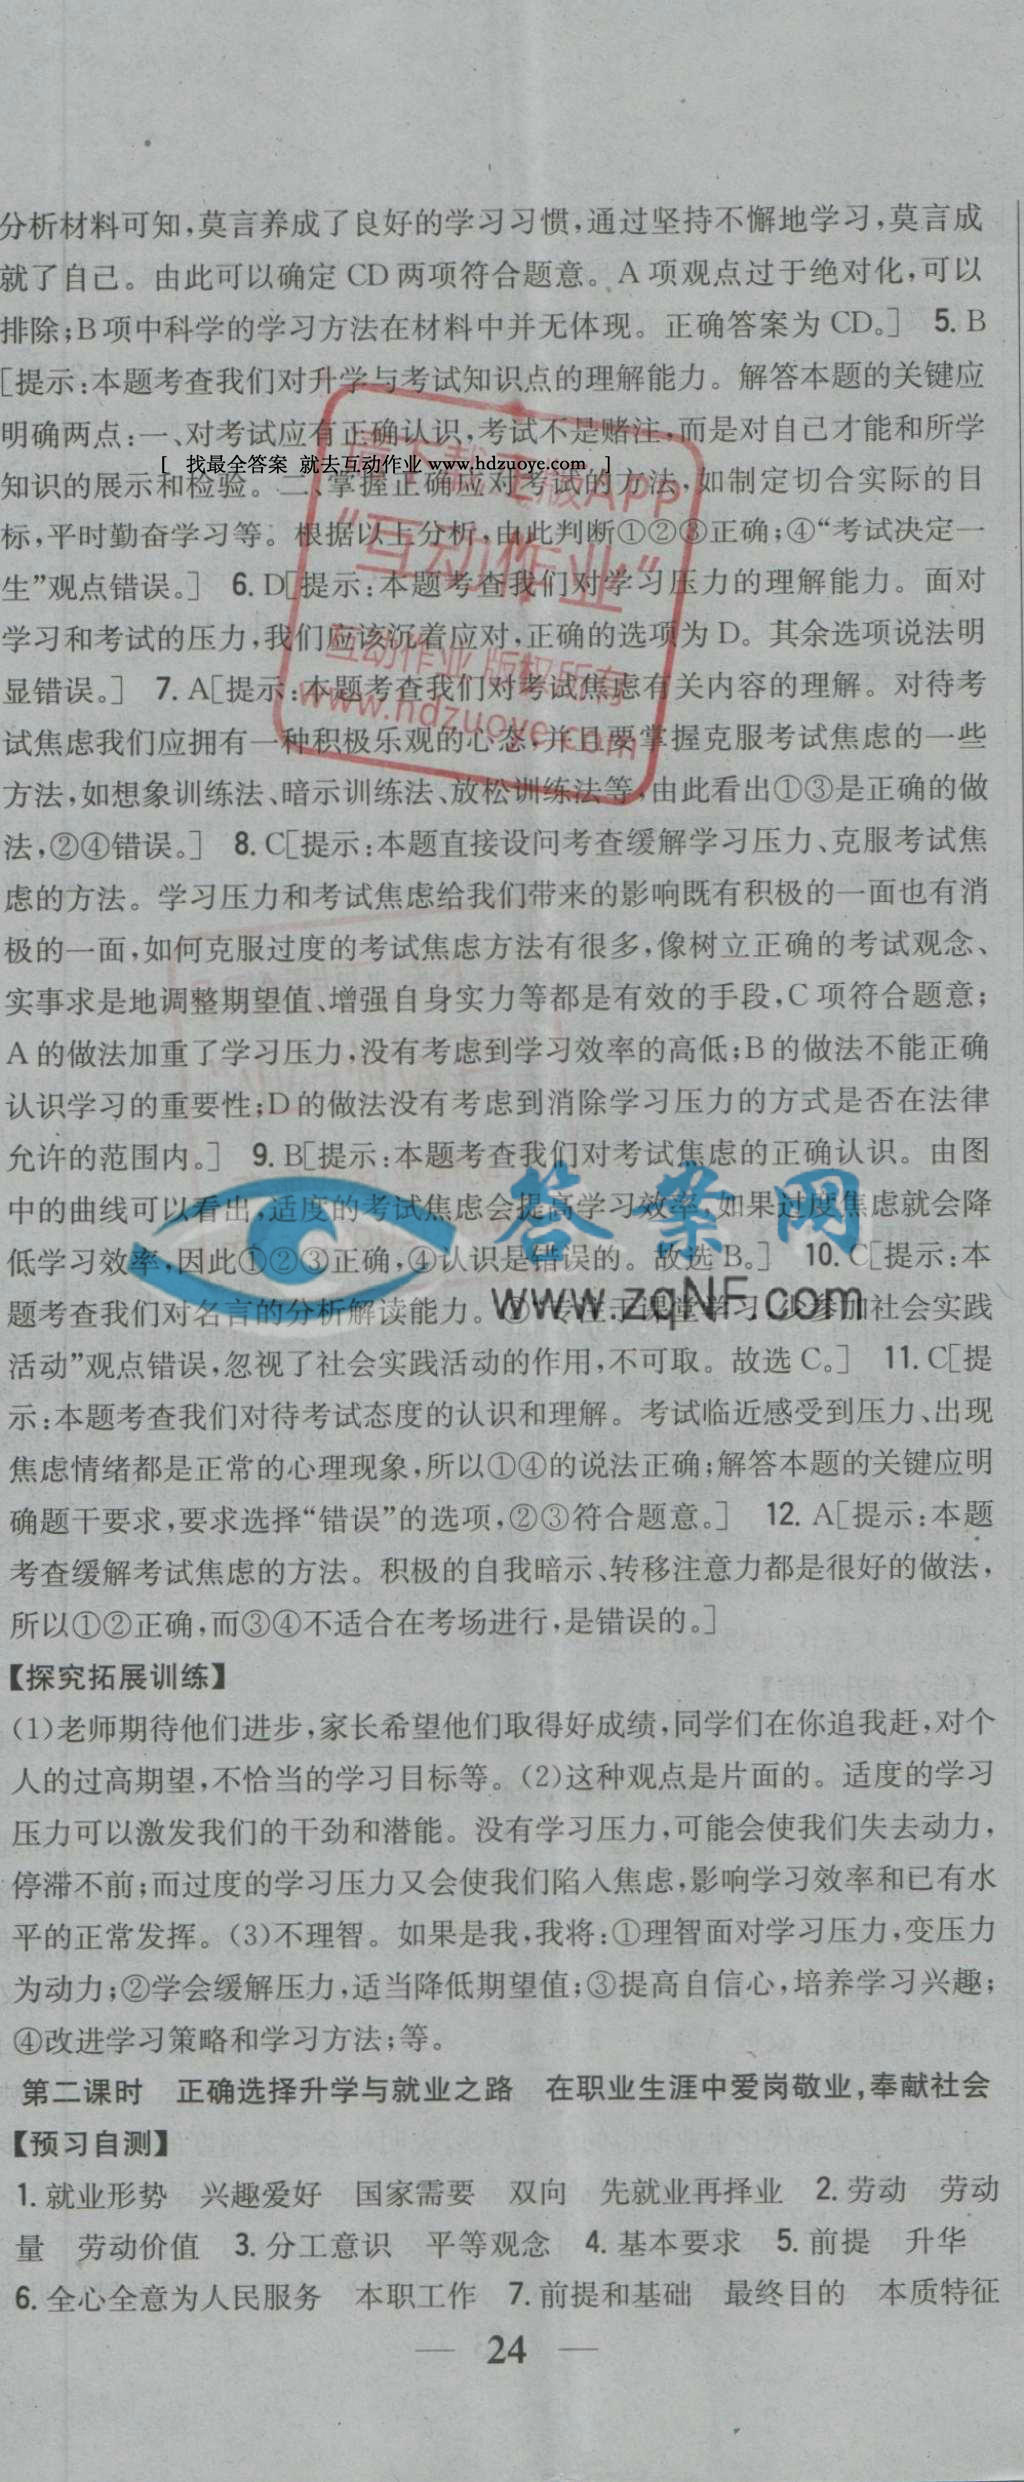 分析材料可知,莫言养成了良好的学习习惯,通过坚持不懈地学习,莫言成
就了自己。由此可以确定 CD 两项符合题意。A 项观点过于绝对化,可以
排除;B 项中科学的学习方法在材料中并无体现。正确答案为 CD。] 5. B
[提示:本题考查我们对升学与考试知识点的理解能力。解答本题的关键应
明确两点:一、对考试应有正确认识,考试不是赌注,而是对自己才能和所学
[ 找最全答案 就去互动作业 www.hdzuoye.com ]
知识的展示和检验。二、掌握正确应对考试的方法,如制定切合实际的目
标,平时勤奋学习等。根据以上分析,由此判断①②③正确;④“考试决定一
生”观点错误。] 6. D[提示:本题考查我们对学习压力的理解能力。面对
学习和考试的压力,我们应该沉着应对,正确的选项为 D。其余选项说法明
显错误。] 7. A[提示:本题考查我们对考试焦虑有关内容的理解。对待考
试焦虑我们应拥有一种积极乐观的心态,并且要掌握克服考试焦虑的一些
方法,如想象训练法、暗示训练法、放松训练法等,由此看出①③是正确的做
法,②④错误。] 8. C[提示:本题直接设问考查缓解学习压力、克服考试焦
虑的方法。学习压力和考试焦虑给我们带来的影响既有积极的一面也有消
极的一面,如何克服过度的考试焦虑方法有很多,像树立正确的考试观念、
实事求是地调整期望值、增强自身实力等都是有效的手段,C 项符合题意;
A 的做法加重了学习压力,没有考虑到学习效率的高低;B 的做法不能正确
认识学习的重要性;D 的做法没有考虑到消除学习压力的方式是否在法律
允许的范围内。] 9. B[提示:本题考查我们对考试焦虑的正确认识。由图
中的曲线可以看出,适度的考试焦虑会提高学习效率,如果过度焦虑就会降
低学习效率,因此①②③正确,④认识是错误的。故选 B。] 10. C[提示:本
题考查我们对名言的分析解读能力。 课堂学习, 参加社会实践
活动”观点错误,忽视了社会实践活动的作用,不可取。故选 C。] 11. C[提
示:本题考查我们对待考试态度的认识和理解。考试临近感受到压力、出现
焦虑情绪都是正常的心理现象,所以①④的说法正确;解答本题的关键应明
确题干要求,要求选择“错误”的选项,②③符合题意。] 12. A[提示:本题
考查缓解考试焦虑的方法。积极的自我暗示、转移注意力都是很好的做法,
所以①②正确,而③④不适合在考场进行,是错误的。]
【探究拓展训练】
(1)老师期待他们进步,家长希望他们取得好成绩,同学们在你追我赶,对个
人的过高期望,不恰当的学习目标等。(2)这种观点是片面的。适度的学习
压力可以激发我们的干劲和潜能。没有学习压力,可能会使我们失去动力,
停滞不前;而过度的学习压力又会使我们陷入焦虑,影响学习效率和已有水
平的正常发挥。(3)不理智。如果是我,我将:①理智面对学习压力,变压力
为动力;②学会缓解压力,适当降低期望值;③提高自信心,培养学习兴趣;
④改进学习策略和学习方法;等。
第二课时 正确选择升学与就业之路 在职业生涯中爱岗敬业,奉献社会
【预习自测】
1. 就业形势 兴趣爱好 国家需要 双向 先就业再择业 2. 劳动 劳动
量 劳动价值 3. 分工意识 平等观念 4. 基本要求 5. 前提 升华
6. 全心全意为人民服务 本职工作 7. 前提和基础 最终目的 本质特征
24
“互动作业”
互动作业 版权所有
www.hdzuoye.com
答案网
www.zqNF.com